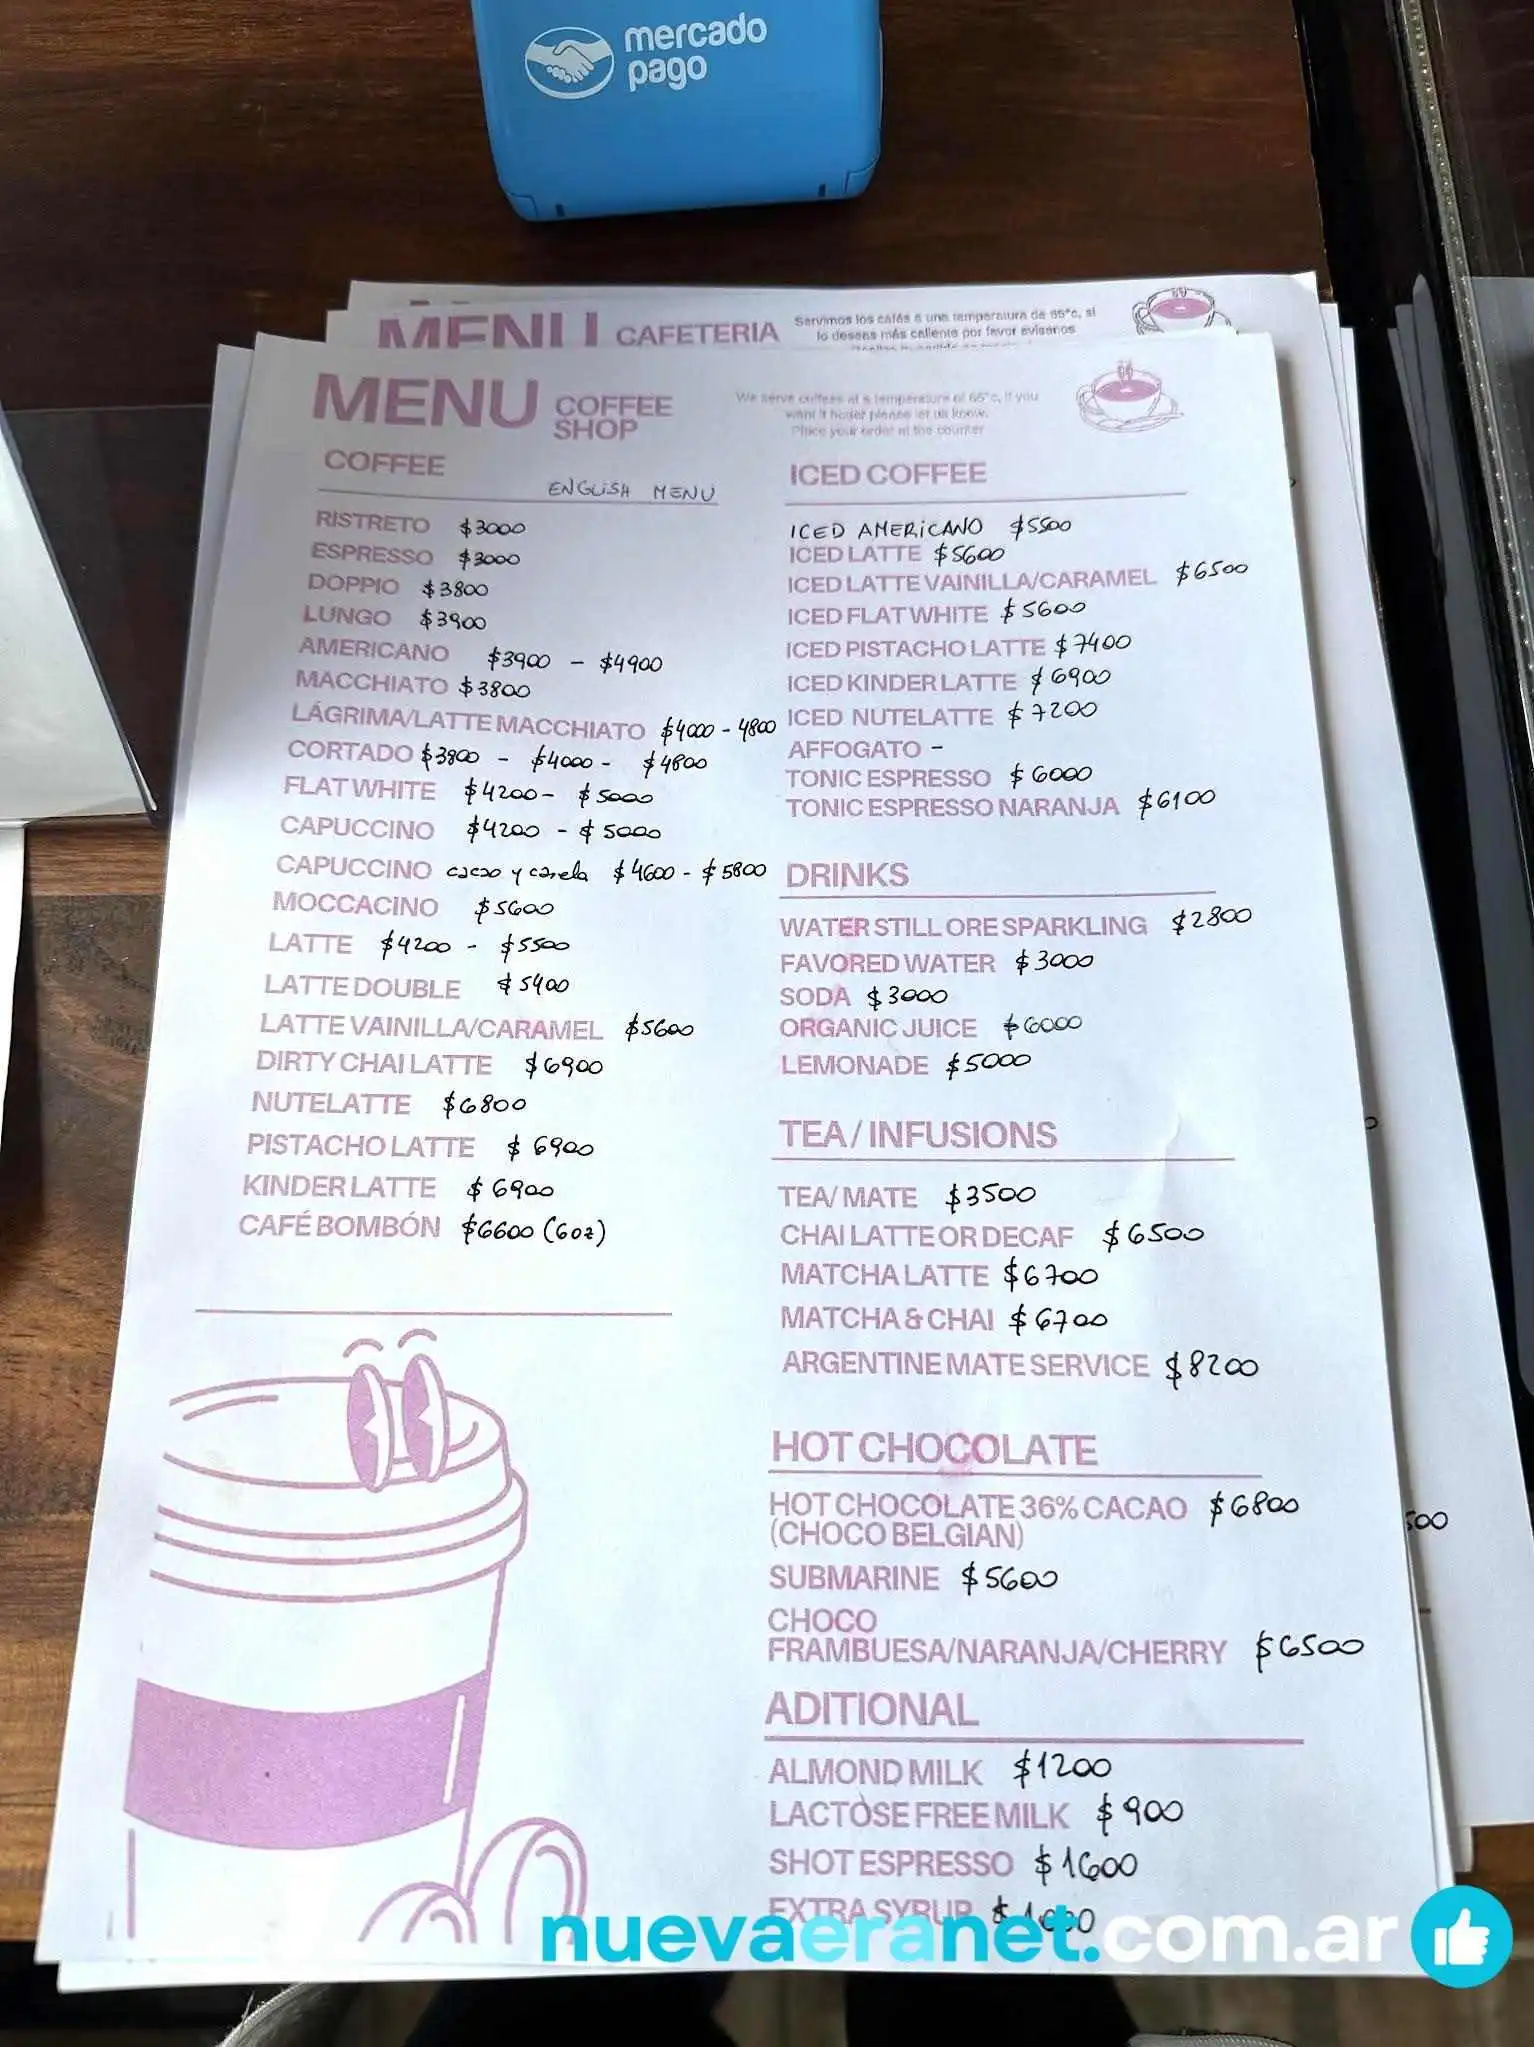 mercado
pago
MENU CAFETERIA
Servimos los cafés a una temperatura de 65°c, si
lo deseas más caliente por favor avisanos
MENU COFFEE
SHOP
We serve coffees at a temperature of 65°c, if you
want it hoter please let us know.
Place your order at the counter
COFFEE
ENGLISH MENU
RISTRETO $3000
ESPRESSO $3000
DOPPIO $3800
LUNGO $3900
AMERICANO $3900 - $4900
MACCHIATO $3800
LÁGRIMA/LATTE MACCHIATO $4000 - 4800
CORTADO $3800 - $4000 - $4800
FLAT WHITE $4200 - $5000
CAPUCCINO $4200 - $5000
CAPUCCINO cacao y canela $4600 - $5800
MOCCACINO $5600
LATTE $4200 - $5500
LATTE DOUBLE $5400
LATTE VAINILLA/CARAMEL $5600
DIRTY CHAI LATTE $6900
NUTELATTE $6800
PISTACHO LATTE $6900
KINDER LATTE $6900
CAFÉ BOMBÓN $6600 (6oz)
ICED COFFEE
ICED AMERICANO $5500
ICED LATTE $5600
ICED LATTE VAINILLA/CARAMEL $6500
ICED FLAT WHITE $5600
ICED PISTACHO LATTE $7400
ICED KINDER LATTE $6900
ICED NUTELATTE $7200
AFFOGATO -
TONIC ESPRESSO $6000
TONIC ESPRESSO NARANJA $6100
DRINKS
WATER STILL ORE SPARKLING $2800
FAVORED WATER $3000
SODA $3000
ORGANIC JUICE $6000
LEMONADE $5000
TEA / INFUSIONS
TEA/ MATE $3500
CHAI LATTE OR DECAF $6500
MATCHA LATTE $6700
MATCHA & CHAI $6700
ARGENTINE MATE SERVICE $8200
HOT CHOCOLATE
HOT CHOCOLATE 36% CACAO $6800
(CHOCO BELGIAN)
SUBMARINE $5600
CHOCO
FRAMBUESA/NARANJA/CHERRY $6500
ADITIONAL
ALMOND MILK $1200
LACTOSE FREE MILK $900
SHOT ESPRESSO $1600
EXTRA SYRUP
500
nuevaeranet.com.ar